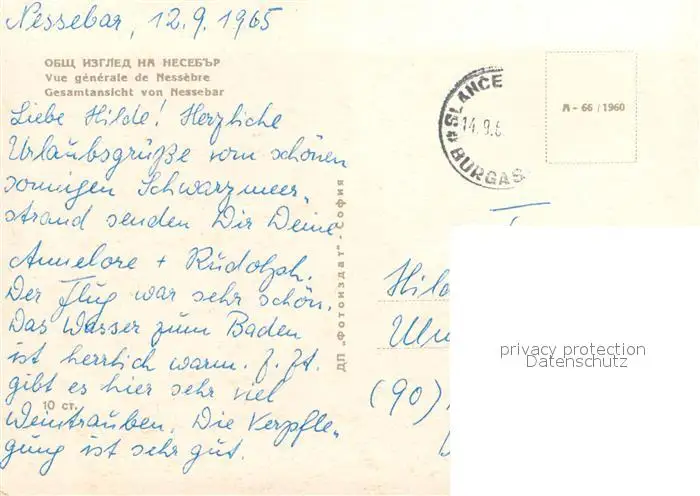 Nessebar, 12.9.1965
ОБЩ ИЗГЛЕД НА НЕСЕБЪР
Vue générale de Nessèbre
Gesamtansicht von Nessebar
Liebe Hilde! Herzliche
Urlaubsgrüße vom schönen
sonnigen Schwarzmeer-
strand senden Dir Deine
Annelore + Rudolph.
Der Flug war sehr schön.
Das Wasser zum Baden
ist herrlich warm. z. Zt.
gibt es hier sehr viel
Weintrauben. Die Verpfle-
gung ist sehr gut.
10 ст.
ДП „Фотоиздат" - София
SLANCE
14.9.6
BURGAS
А - 66 / 1960
Hild
Ulm
(90)
privacy protection
Datenschutz